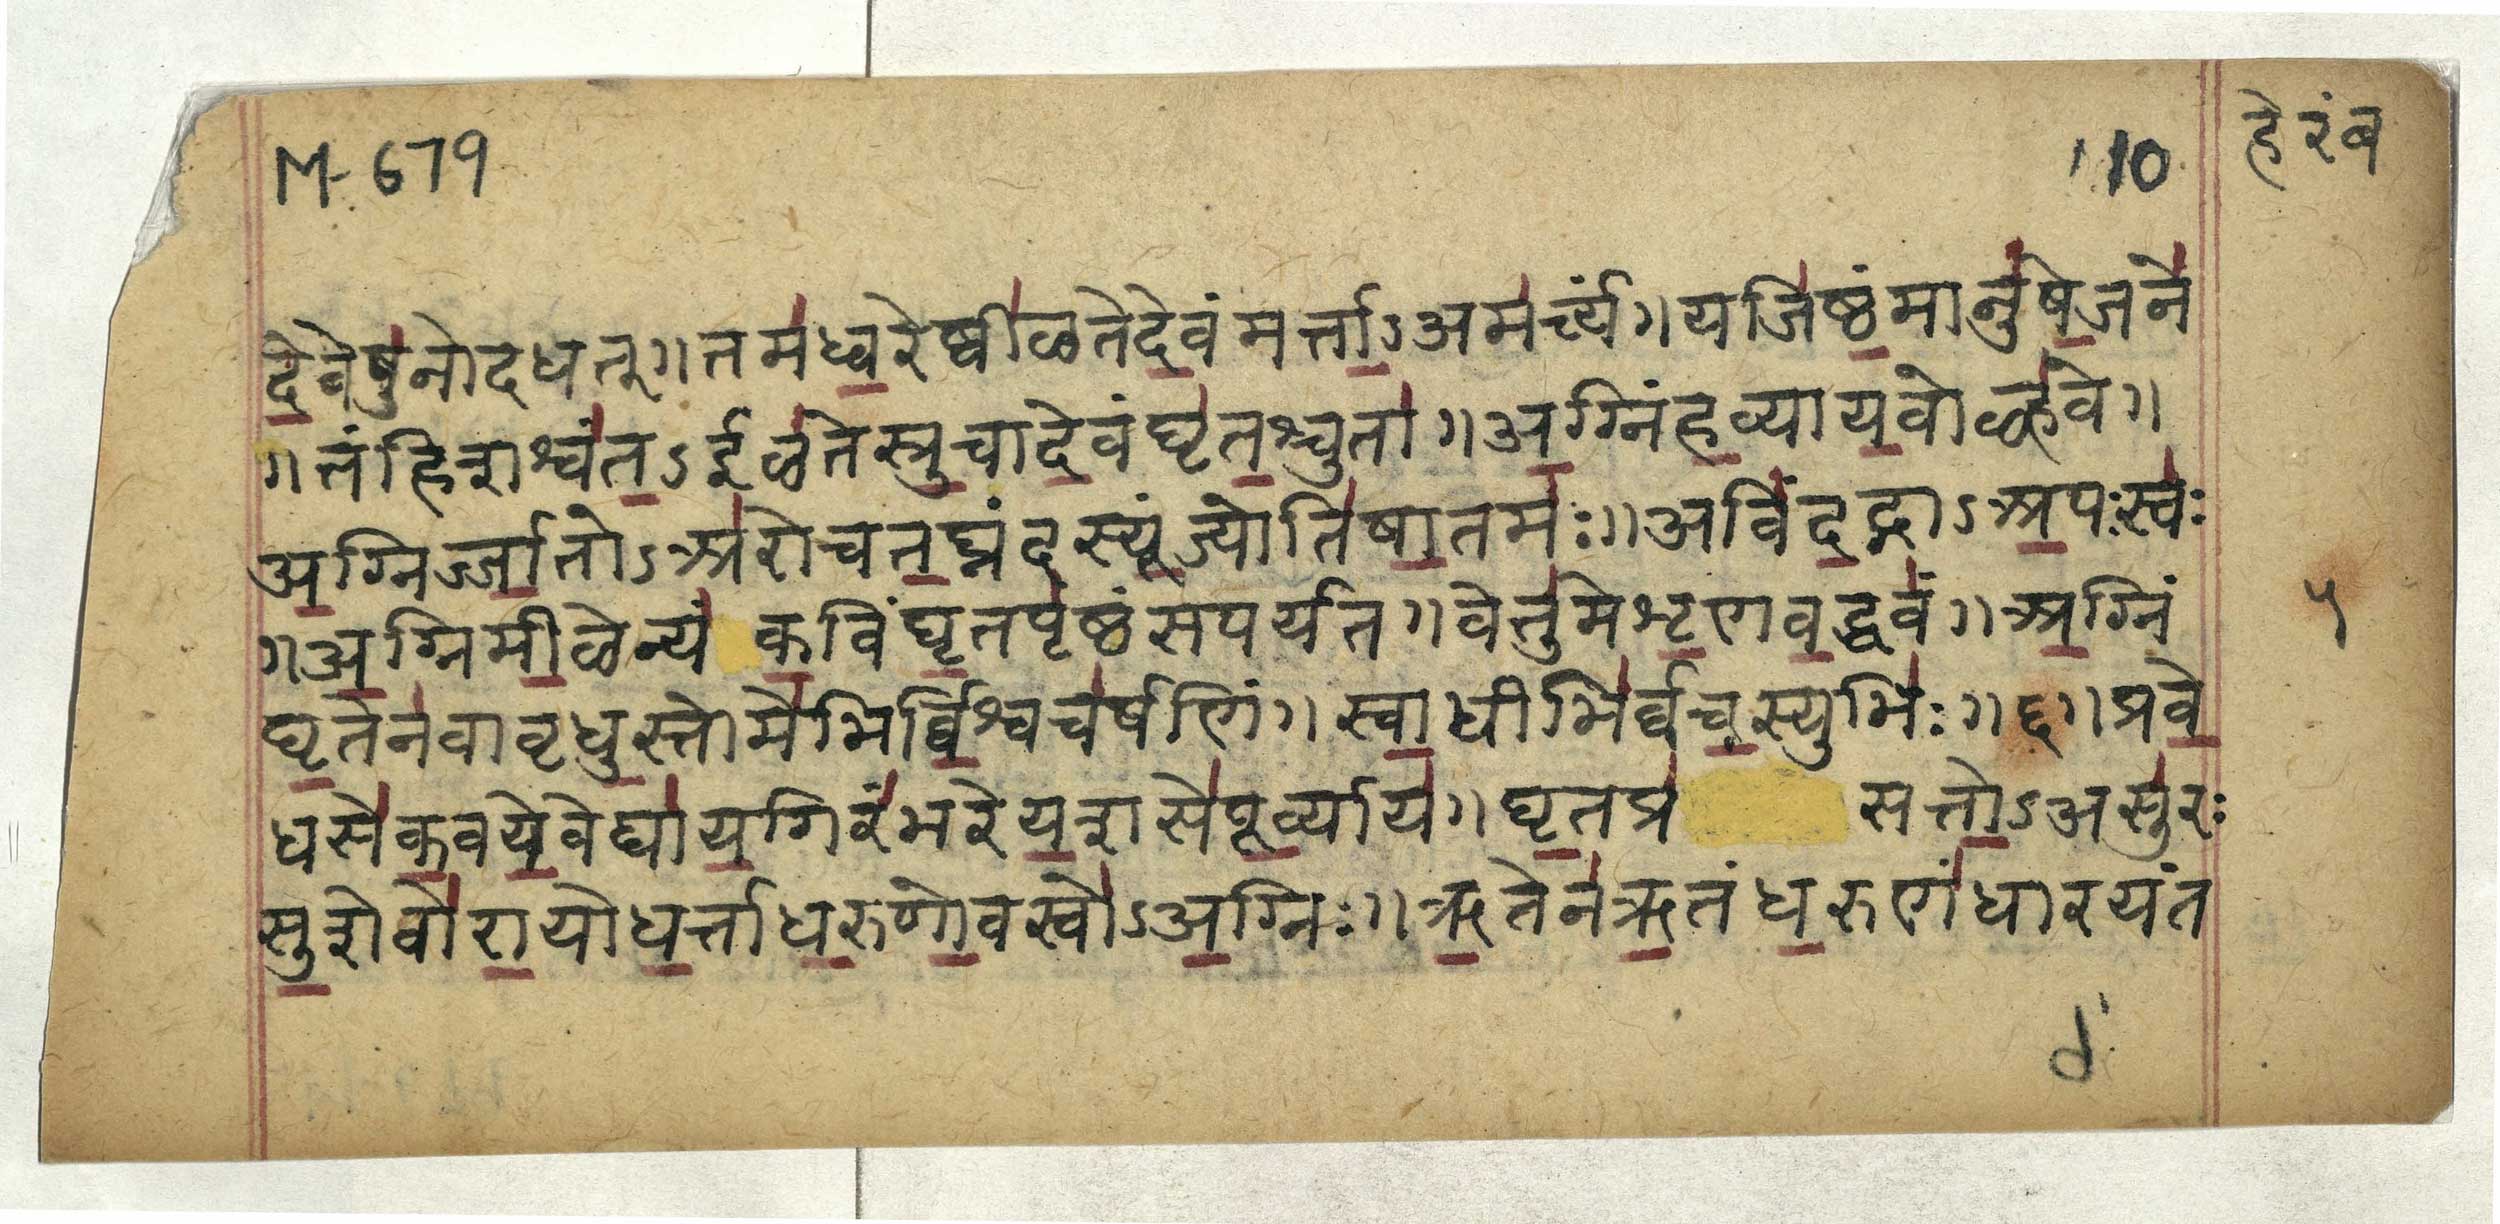 M-679
110
हेरंब
दे॒वेषु॑नोदधत् ॥ तम॑ध्व॒रेष्वी॑ळतेदे॒वंमर्त्ता॒ऽअम॑र्त्यं । यजि॑ष्ठं॒मानु॑षे॒जने॑
॥ तंहिशश्वं॑त॒ऽईळ॑तेस्रु॒चादे॒वंघृ॑त॒श्चुता॑ । अ॒ग्निंह॒व्याय॒वोळ्ह॑वे ॥
अ॒ग्निर्ज्जा॒तोऽअ॑रोचत॒घ्नंदस्यूं॒ज्योति॑षा॒तमः॑ ॥ अविं॑द॒द्गाऽअ॒पःस्वः॑
॥ अ॒ग्निमी॒ळेन्यं॑ क॒विंघृ॒तपृ॑ष्ठंसपर्यत । वेतु॑मेशृ॒णव॒द्धवं॑ । अ॒ग्निं
५
घृ॒तेन॑वावृधु॒स्तोमे॑भिर्वि॒श्वच॑र्षणिं । स्वा॒धीभि॑र्वच॒स्युभिः॑ ॥ ६ ॥ प्रवे॒
धसे॑क॒वये॒वेद्या॑य॒गिरं॑भरेय॒शसे॑पू॒र्व्याय॑ । घृ॒तप्र॑ सत्तो॒ऽअसु॑रः
सु॒शेवो॑रा॒योध॒र्त्ताध॒रुणो॒वस्वो॑ऽअ॒ग्निः ॥ ऋ॒तेन॑ऋ॒तंध॒रुणं॑धारयंत